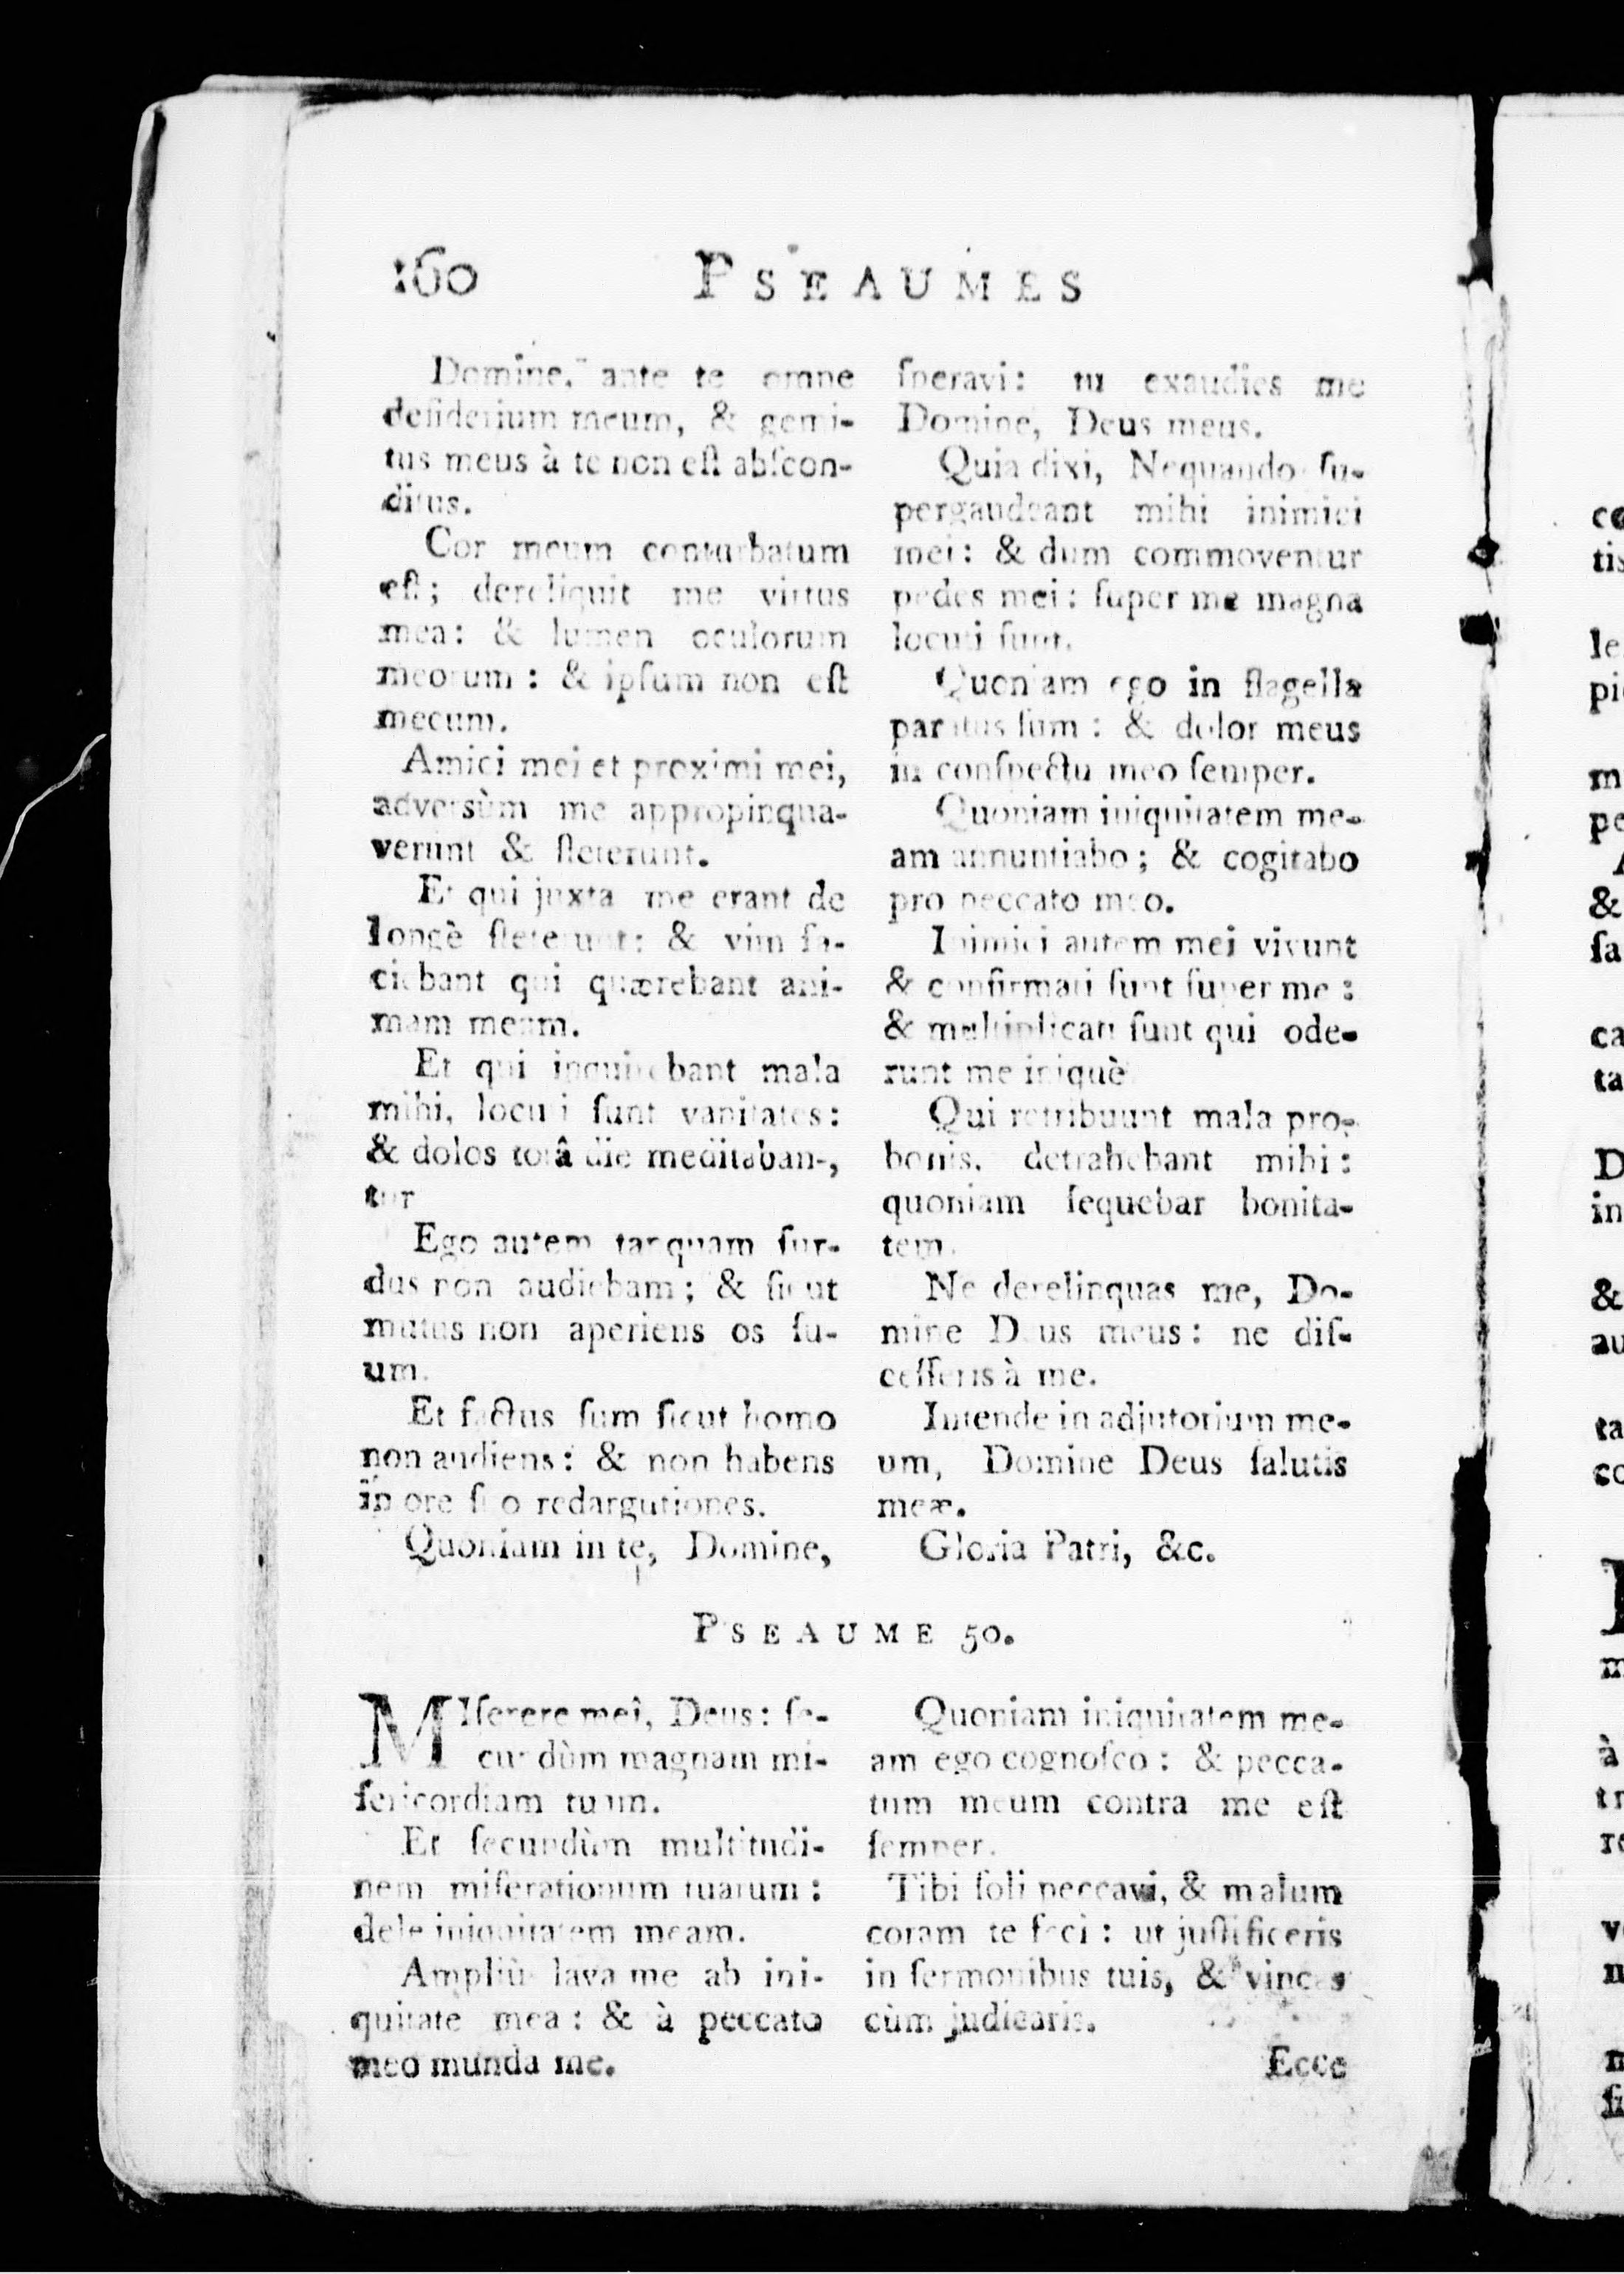 160 PSEAUMES
Domine, ante te omne
deſiderium meum, & gemi-
tus meus à te non eſt abſcon-
ditus.
Cor meum conturbatum
eſt; dereliquit me virtus
mea: & lumen oculorum
meorum: & ipſum non eſt
mecum.
Amici mei et proximi mei,
adversùm me appropinqua-
verunt & ſteterunt.
Et qui juxta me erant de
longè ſteterunt: & vim fa-
ciebant qui quærebant ani-
mam meam.
Et qui inquirebant mala
mihi, locuti ſunt vanitates:
& dolos totâ die meditaban-,
tur
Ego autem tanquam ſur-
dus non audiebam; & ſicut
mutus non aperiens os ſu-
um.
Et factus ſum ſicut homo
non audiens: & non habens
in ore ſuo redargutiones.
Quoniam in te, Domine,
ſperavi: tu exaudies me
Domine, Deus meus.
Quia dixi, Nequando ſu-
pergaudeant mihi inimici
mei: & dum commoventur
pedes mei: ſuper me magna
locuti ſunt.
Quoniam ego in flagella
paratus ſum: & dolor meus
in conſpectu meo ſemper.
Quoniam iniquitatem me-
am annuntiabo; & cogitabo
pro peccato meo.
Inimici autem mei vivunt
& confirmati ſunt ſuper me:
& multiplicati ſunt qui ode-
runt me iniquè
Qui retribuunt mala pro-
bonis, detrahebant mihi:
quoniam ſequebar bonita-
tem.
Ne derelinquas me, Do-
mine Deus meus: ne diſ-
ceſſeris à me.
Intende in adjutorium me-
um, Domine Deus ſalutis
meæ.
Gloria Patri, &c.
PSEAUME 50.
MIſerere meî, Deus: ſe-
cundùm magnam mi-
ſericordiam tuam.
Et ſecundùm multitudi-
nem miſerationum tuarum:
dele iniquitatem meam.
Ampliùs lava me ab ini-
quitate mea: & à peccato
meo munda me.
Quoniam iniquitatem me-
am ego cognoſco: & pecca-
tum meum contra me eſt
ſemper.
Tibi ſoli peccavi, & malum
coram te feci: ut juſtificeris
in ſermonibus tuis, & vincas
cùm judicaris.
Ecce